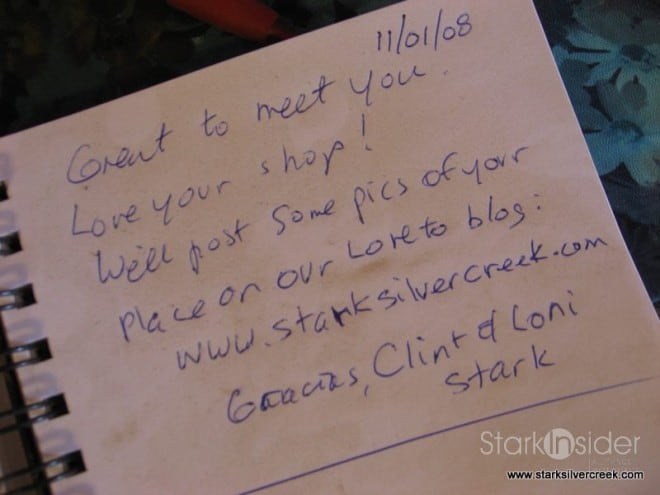 11/01/08
Great to meet you.
Love your shop!
We'll post some pics of your
place on our Loreto blog:
www.starksilvercreek.com
Gracias, Clint & Loni
Stark
StarkInsider
www.starksilvercreek.com